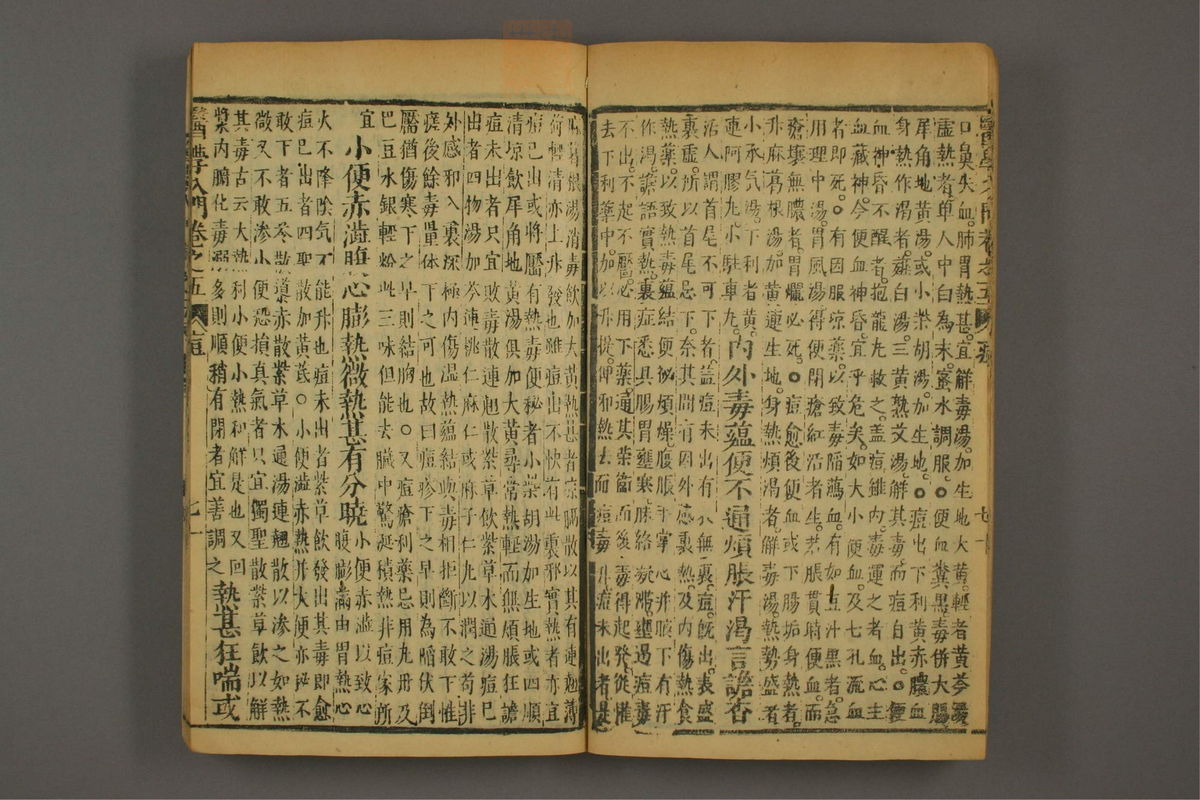 醫學入門卷之五 痘 七十
口鼻失血肺胃熱甚宜解毒湯加生地大黃輕者黃芩湯
虛熱者單人中白為末蜜水調服○便血糞黑毒併大腸
犀角地黃湯或小柴胡湯加生地○痘出下利黃赤膿血
身熱作渴者薤白湯三黃熟艾湯解其毒而痘自出○便
血神昏不醒者抱龍丸救之蓋痘雖內毒運之者血心主
血藏神今便血神昏宜乎危矣如大小便血及七孔流血
者即死○有因服涼藥以致毒陷薦血有如豆汁黑者急
用理中湯胃風湯得便閉瘡紅活者生若脹貫時便血而
瘡壞無膿者胃爛必死○痘愈後便血或下腸垢身熱者
升麻葛根湯加黃連生地身熱煩渴者解毒湯熱勢盛者
小承氣下利者黃
連阿膠丸小駐車丸
內外毒蘊便不通煩脹汗渴言譫杏
活人謂首尾不可下者蓋痘未出有表無裏痘既出表盛
裏虛所以首尾忌下奈其間有因外感裏熱及內傷熱食
熱藥以致熱毒蘊結便秘煩燥腹脹手掌心并腋下有汗
作渴譫語實熱裏症悉具腸胃壅塞脉絡凝滯壅遏痘毒
不出不起不靨必用下藥通其榮衛而後毒得起發從權
去下利藥中加以升提俾邪熱去而痘毒升痘未出者是
麻葛根湯消毒飲加大黃熱甚者涼膈散以其有連翹薄
荷輕清亦上升發也雖痘出不快有此裏邪實熱者亦宜
痘已出或將靨有熱毒便秘者小柴胡湯加生地或四順
清涼飲犀角地黃湯俱加大黃尋常熱輕而無煩脹狂譫
痘未出者只宜敗毒散連翹散紫草飲紫草木通湯痘已
出者四物湯加芩連桃仁麻仁或麻子仁丸以潤之苟非
外感邪入裏深極內傷溫熱蘊結與毒相拒斷不敢下惟
痘後餘毒量体下之可也故曰痘疹下之早則為陷伏倒
靨猶傷寒下之早則結胸也○又痘瘡利藥忌用丸丹及
巴豆水銀輕粉此三味但能去臟中驚涎積熱非痘家所
宜
小便赤澁腹心膨熱微熱甚有分曉
小便赤澁以致心
腹膨滿由胃熱心
火不降陰気不能升也痘未出者紫草飲發出其毒即愈
痘已出者四聖散加黃芪○小便澁赤熱并大便亦妨不
敢下者五苓散導赤散紫草木通湯連翹散以滲之如熱
微又不敢滲小便恐損真氣者只宜獨聖散紫草飲以解
其毒古云大熱利小便小熱和解是也又回
漿內膿化毒溺多則順稍有閉者宜善調之
熱甚狂喘或
醫學入門卷之五 痘 七十一